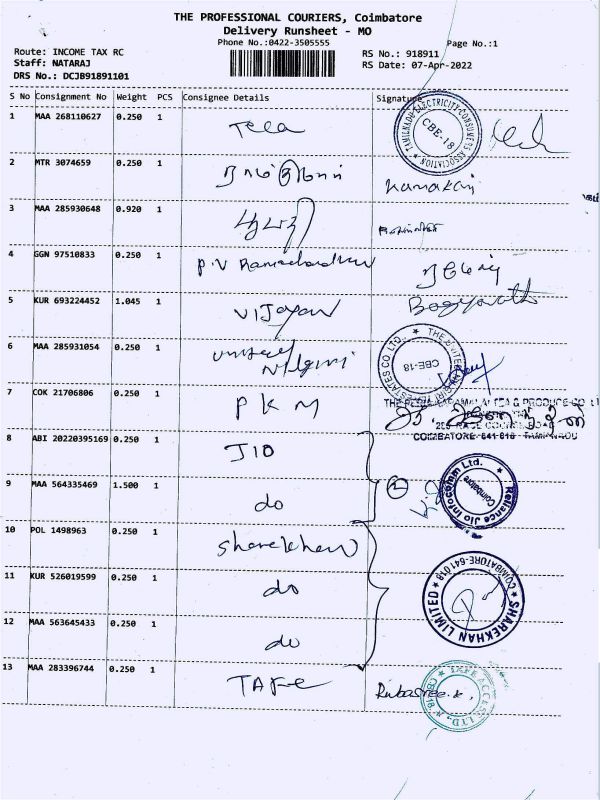 THE PROFESSIONAL COURIERS, Coimbatore
Delivery Runsheet - MO
Phone No.:0422-3505555
Page No.:1
Route: INCOME TAX RC
Staff: NATARAJ
DRS No.: DCJB91891101
RS No.: 918911
RS Date: 07-Apr-2022
S No Consignment No Weight PCS Consignee Details Signature
1 MAA 268110627 0.250 1
TAMILNADU ELECTRICITY CONSUMERS ASSOCIATION
CBE-18
2 MTR 3074659 0.250 1
3 MAA 285930648 0.920 1
4 GGN 97510833 0.250 1 P.V
5 KUR 693224452 1.045 1 Vijayan
6 MAA 285931054 0.250 1 Nilgiri
THE UNITED NILGIRI TEA ESTATES CO. LTD.
CBE-18
7 COK 21706806 0.250 1 PKM
COIMBATORE-641 018 TAMILNADU
8 ABI 20220395169 0.250 1 JIO
9 MAA 564335469 1.500 1 do 2
Reliance Jio Infocomm Ltd.
Coimbatore
10 POL 1498963 0.250 1 Sharekhan
11 KUR 526019599 0.250 1 do
SHAREKHAN LIMITED
COIMBATORE-641 018
12 MAA 563645433 0.250 1 do
13 MAA 283396744 0.250 1 TAFE Rubasree.k,
TAFE ACCESS LTD.
CBE-18